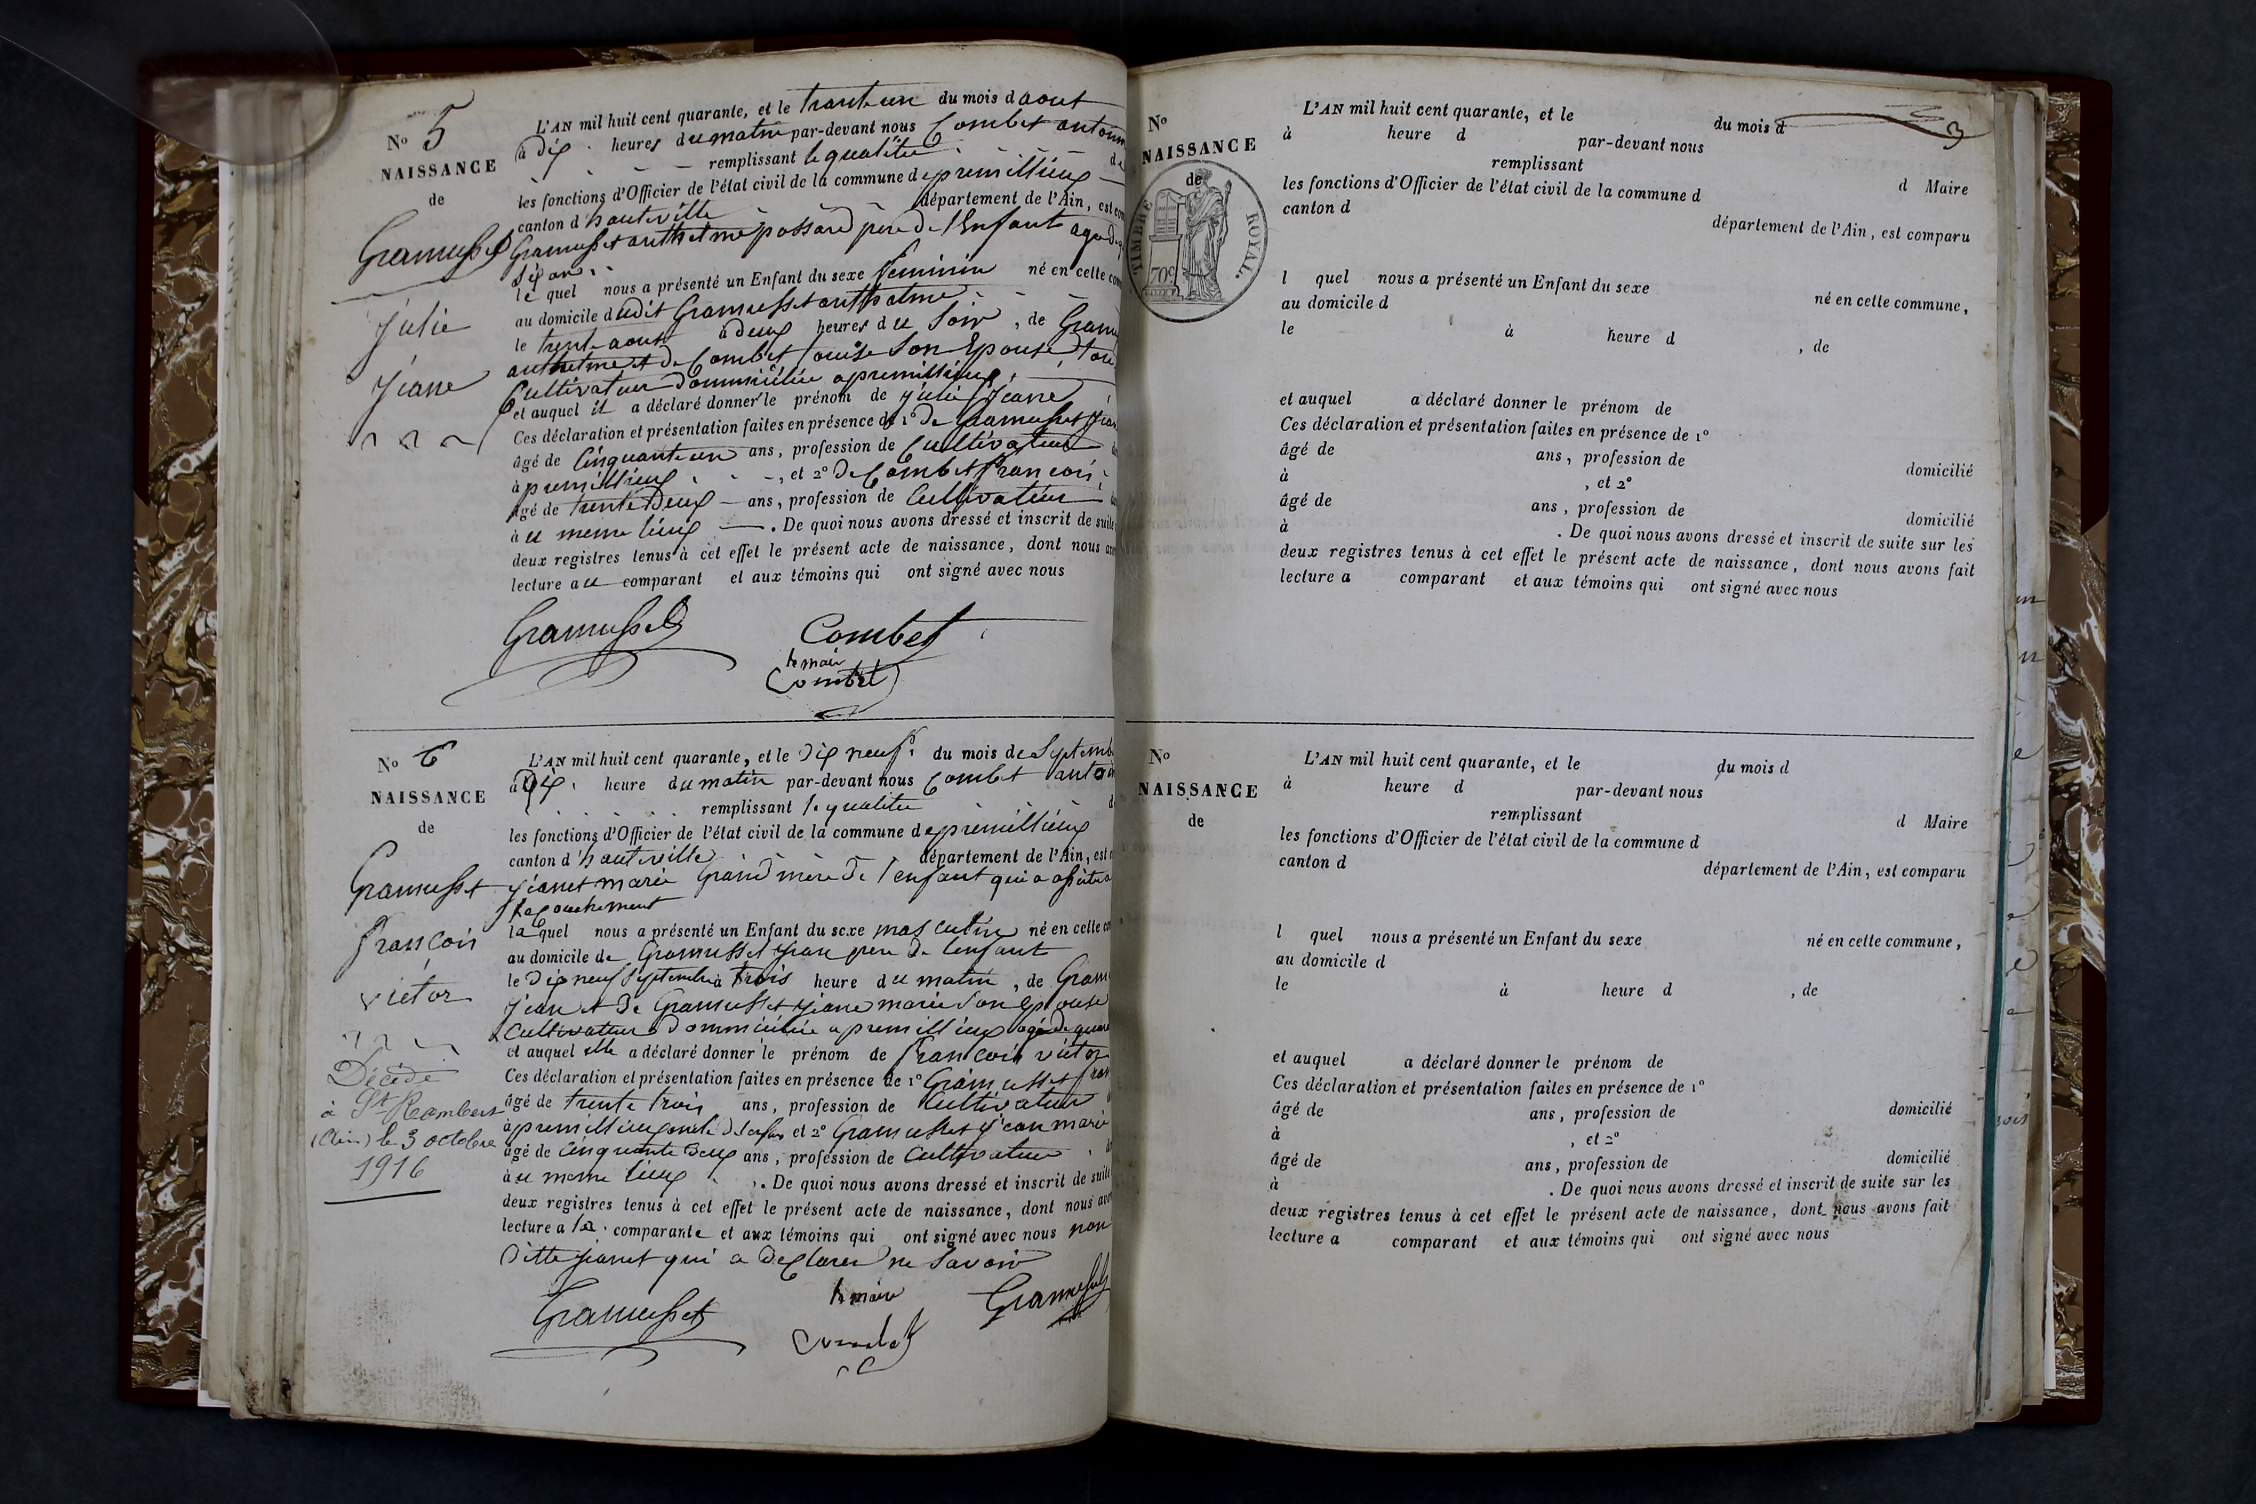 No 5
NAISSANCE
de
Gramusset
Julie
Jeane
L'AN mil huit cent quarante, et le trante un du mois d aout
à dix heures du matin par-devant nous Combet antoine
remplissant le qualitée
les fonctions d'Officier de l'état civil de la commune de premillieux
canton d'hauteville département de l'Ain, est
Gramusset anthelme possard père de l'Enfant agé de
Six ans
le quel nous a présenté un Enfant du sexe feminin né en cette
au domicile dudit Gramusset anthelme
le trente aout à deux heures du Soir, de
anthelme et de Combet louise Son Epouse
Cultivateur dommiciliée a premillieux
et auquel il a déclaré donner le prénom de Julie Jeane
Ces déclaration et présentation faites en présence de 1º de Gramusset
âgé de Cinquante un ans, profession de Cultivateur
à premillieux, et 2º de Combet françois
âgé de trente Deux ans, profession de Cultivateur
à u meme lieux. De quoi nous avons dressé et inscrit de suite
deux registres tenus à cet effet le présent acte de naissance, dont nous
lecture a u comparant et aux témoins qui ont signé avec nous
Gramusset Combet
le maire
Combet
No 6
NAISSANCE
de
Gramusset
françois
victor
Décédé
à St Rambert
(Ain) le 3 octobre
1916
L'AN mil huit cent quarante, et le dix neuf du mois de Septembre
à dix heure du matin par-devant nous Combet antoine
remplissant le qualitée
les fonctions d'Officier de l'état civil de la commune de premillieux
canton d'hauteville département de l'Ain, est
Jeanet marie Grand mère de l'enfant qui a assisté a
la quel nous a présenté un Enfant du sexe masculin né en cette
au domicile de Gramusset Jean père de l'enfant
le dix neuf septembre à trois heure du matin, de
Jean et de Gramusset Jeane marie Son Epouse
Cultivateur dommiciliée a premillieux agé de
et auquel elle a déclaré donner le prénom de françois victor
Ces déclaration et présentation faites en présence de 1º Gramusset
âgé de trente trois ans, profession de Cultivateur
à premillieux et 2º Gramusset Jean marie
âgé de Cinquante Deux ans, profession de Cultivateur
à u meme lieux. De quoi nous avons dressé et inscrit de suite
deux registres tenus à cet effet le présent acte de naissance, dont nous
lecture a la comparante et aux témoins qui ont signé avec nous non
ditte Jeanet qui a declarer ne Savoir
Gramusset le maire Gramusset
Combet
3
No
NAISSANCE
de
TIMBRE ROYAL.
70c
L'AN mil huit cent quarante, et le du mois d
à heure d par-devant nous
remplissant d Maire
les fonctions d'Officier de l'état civil de la commune d
canton d département de l'Ain, est comparu
l quel nous a présenté un Enfant du sexe né en cette commune,
au domicile d
le à heure d , de
et auquel a déclaré donner le prénom de
Ces déclaration et présentation faites en présence de 1º
âgé de ans, profession de domicilié
à , et 2º
âgé de ans, profession de domicilié
à . De quoi nous avons dressé et inscrit de suite sur les
deux registres tenus à cet effet le présent acte de naissance, dont nous avons fait
lecture a comparant et aux témoins qui ont signé avec nous
No
NAISSANCE
de
L'AN mil huit cent quarante, et le du mois d
à heure d par-devant nous
remplissant d Maire
les fonctions d'Officier de l'état civil de la commune d
canton d département de l'Ain, est comparu
l quel nous a présenté un Enfant du sexe né en cette commune,
au domicile d
le à heure d , de
et auquel a déclaré donner le prénom de
Ces déclaration et présentation faites en présence de 1º
âgé de ans, profession de domicilié
à , et 2º
âgé de ans, profession de domicilié
à . De quoi nous avons dressé et inscrit de suite sur les
deux registres tenus à cet effet le présent acte de naissance, dont nous avons fait
lecture a comparant et aux témoins qui ont signé avec nous